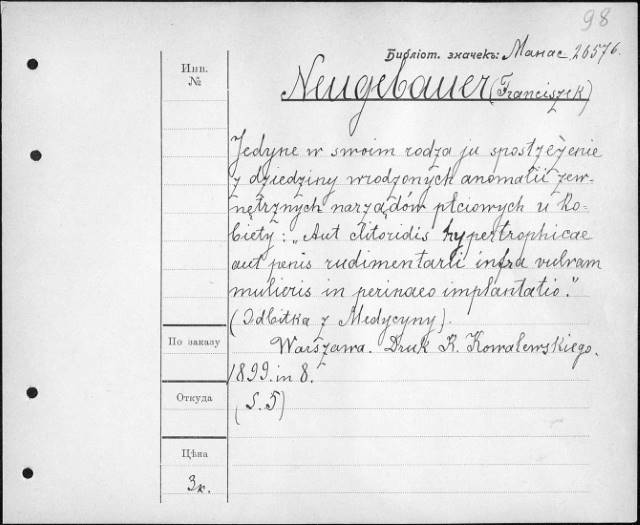 98
Библіот. значекъ: Манас 20576.
Инв.
№
Neugebauer (Franciszek)
Jedyne w swoim rodza ju spostrzeżenie
z dziedziny wrodzonych anomalii zew-
nętrznych narządów płciowych u ko-
biety: "Aut clitoridis hypertrophicae
aut penis rudimentarii infra vulvam
mulieris in perinaeo implantatio."
(Odbitka z Medycyny).
По заказу
Warszawa. Druk K. Kowalewskiego.
1899. in 8.
Откуда
(S. 5)
Цѣна
3к.